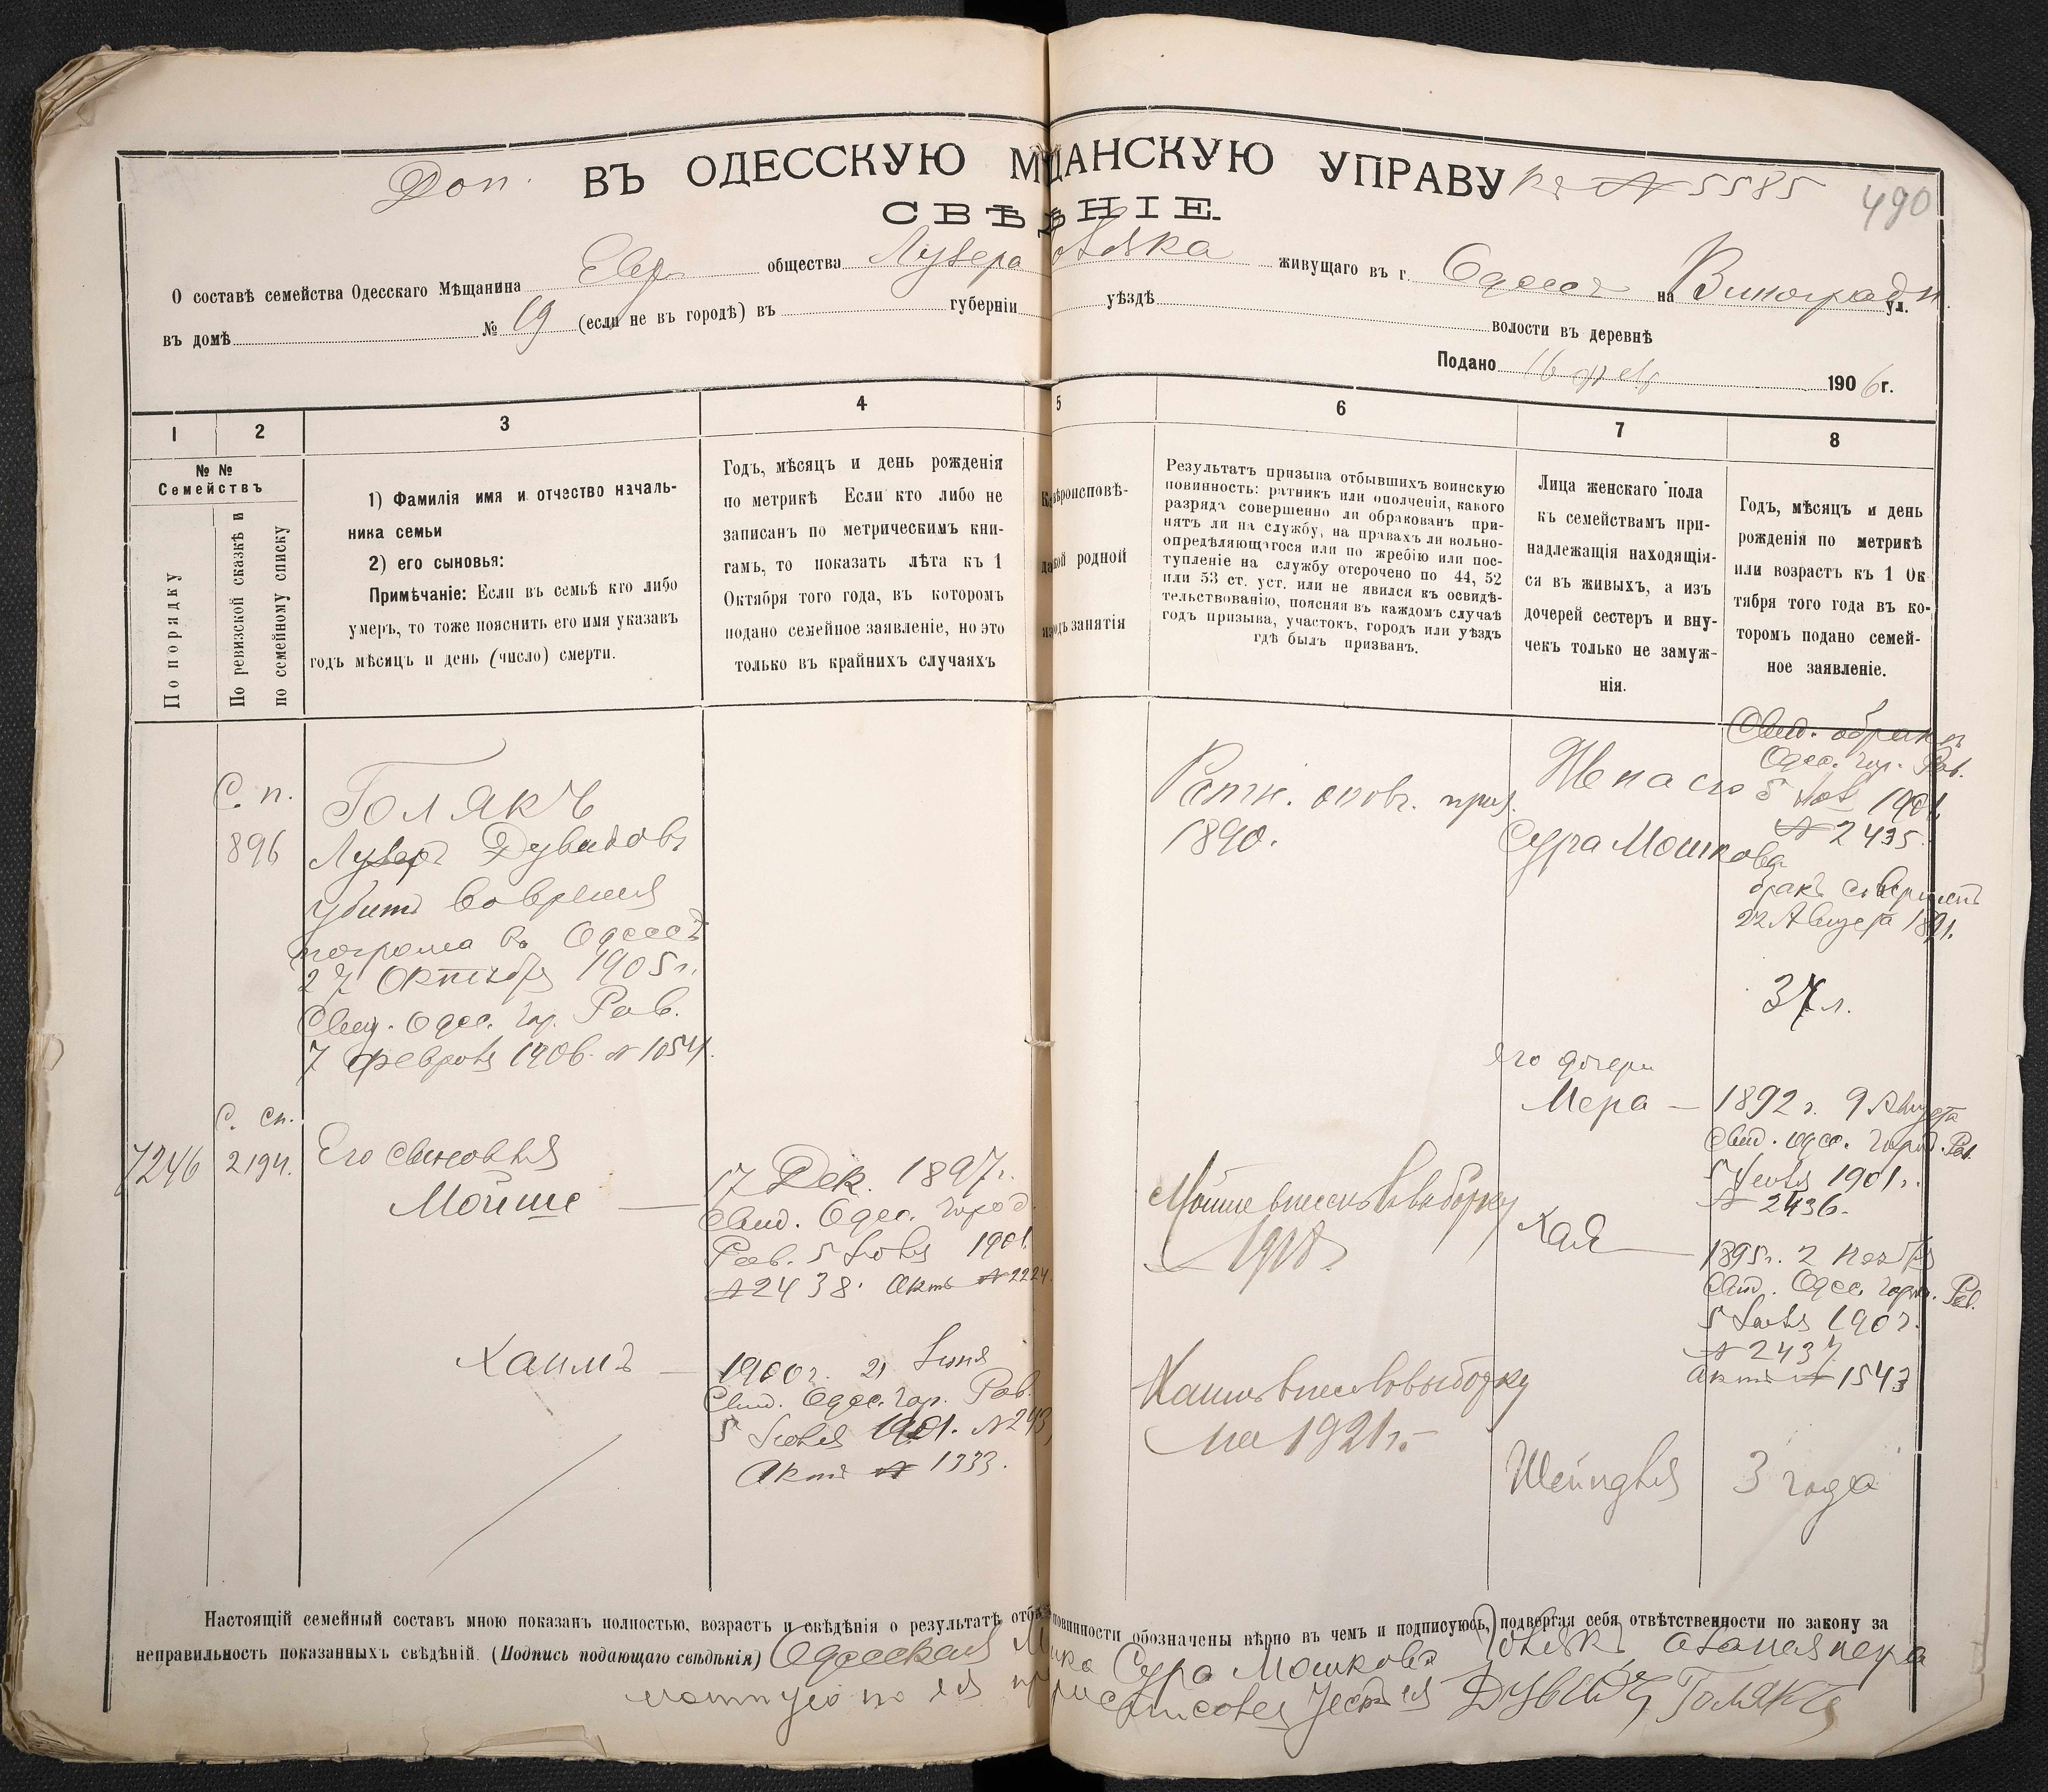 Доп. ВЪ ОДЕССКУЮ М ЩАНСКУЮ УПРАВУ къ № 5585
490
СВѢ НІЕ.
О составѣ семейства Одесскаго Мѣщанина Евр общества Лузера живущаго въ г. Одессѣ на Виноградн. ул.
въ домѣ № 19 (если не въ городѣ) въ губерніи уѣздѣ волости въ деревнѣ
Подано 16 фев 1906 г.
1 2 3 4 5 6 7 8
№ №
Семействъ
По порядку
По ревизской сказкѣ и
по семейному списку
1) Фамилія имя и отчество началь-
ника семьи
2) его сыновья:
Примѣчаніе: Если въ семьѣ кто либо
умеръ, то тоже пояснить его имя указавъ
годъ мѣсяцъ и день (число) смерти.
Годъ, мѣсяцъ и день рожденія
по метрикѣ Если кто либо не
записанъ по метрическимъ кни-
гамъ, то показать лѣта къ 1
Октября того года, въ которомъ
подано семейное заявленіе, но это
только въ крайнихъ случаяхъ
вѣроисповѣ-
родной
занятія
Результатъ призыва отбывшихъ воинскую
повинность: ратникъ или ополченія, какого
разряда совершенно ли обракованъ при-
нятъ ли на службу, на правахъ ли вольно-
опредѣляющагося или по жребію или пос-
тупленіе на службу отсрочено по 44, 52
или 53 ст. уст. или не явился къ освидѣ-
тельствованію, поясняя въ каждомъ случаѣ
годъ призыва, участокъ, городъ или уѣздъ
гдѣ былъ призван.
Лица женскаго пола
къ семействамъ при-
надлежащія находящія-
ся въ живыхъ, а изъ
дочерей сестеръ и вну-
чекъ только не замуж-
нія.
Годъ, мѣсяцъ и день
рожденія по метрикѣ
или возрастъ къ 1 Ок
тября того года въ ко-
торомъ подано семей-
ное заявленіе.
С. п.
896
Голякъ
Лузеръ Дувидовъ
убитъ во время
погрома въ Одессѣ
27 Октября 1905 г.
Свид. Одес. гор. Рав.
7 февраля 1906. № 1054.
Ратн. опол. приз.
1890.
Жена его
Сура Мошкова
Свид. о бракѣ
Одес. гор. Рав.
5 1901.
№ 2435.
бракъ совершенъ
22 Августа 1891.
37 л.
его дочери
Мера —
1892 г. 9 Августа
Свид. Одес. город. Рав.
5 Іюля 1901 г.
№ 2436.
7246
С. сп.
2194.
Его сыновья
Мойше —
17 Дек. 1897 г.
Свид. Одес. город.
Рав. 5 Іюля 1901.
№ 2438. Актъ № 2224.
Мойше внесенъ въ выборку
1918 г.
Хая —
1895 г. 2 Ноября
Свид. Одес. город. Рав.
5 Іюля 1901.
№ 2437
актъ № 1543
Хаимъ —
1900 г. 21 Іюня
Свид. Одес. гор. Рав.
5 Іюля 1901. № 243
Актъ № 1333.
Хаимъ внесенъ въ выборку
на 1921 г.
Шейндля 3 года
Настоящій семейный составъ мною показанъ полностью, возрастъ и свѣдѣнія о результатѣ повинности обозначены вѣрно въ чемъ и подписуюсь, подвергая себя отвѣтственности по закону за
неправильность показанныхъ свѣдѣній. (Подпись подающаго свѣдѣнія) Одесская Сура Мошкова Голякъ
Дувидъ Голякъ